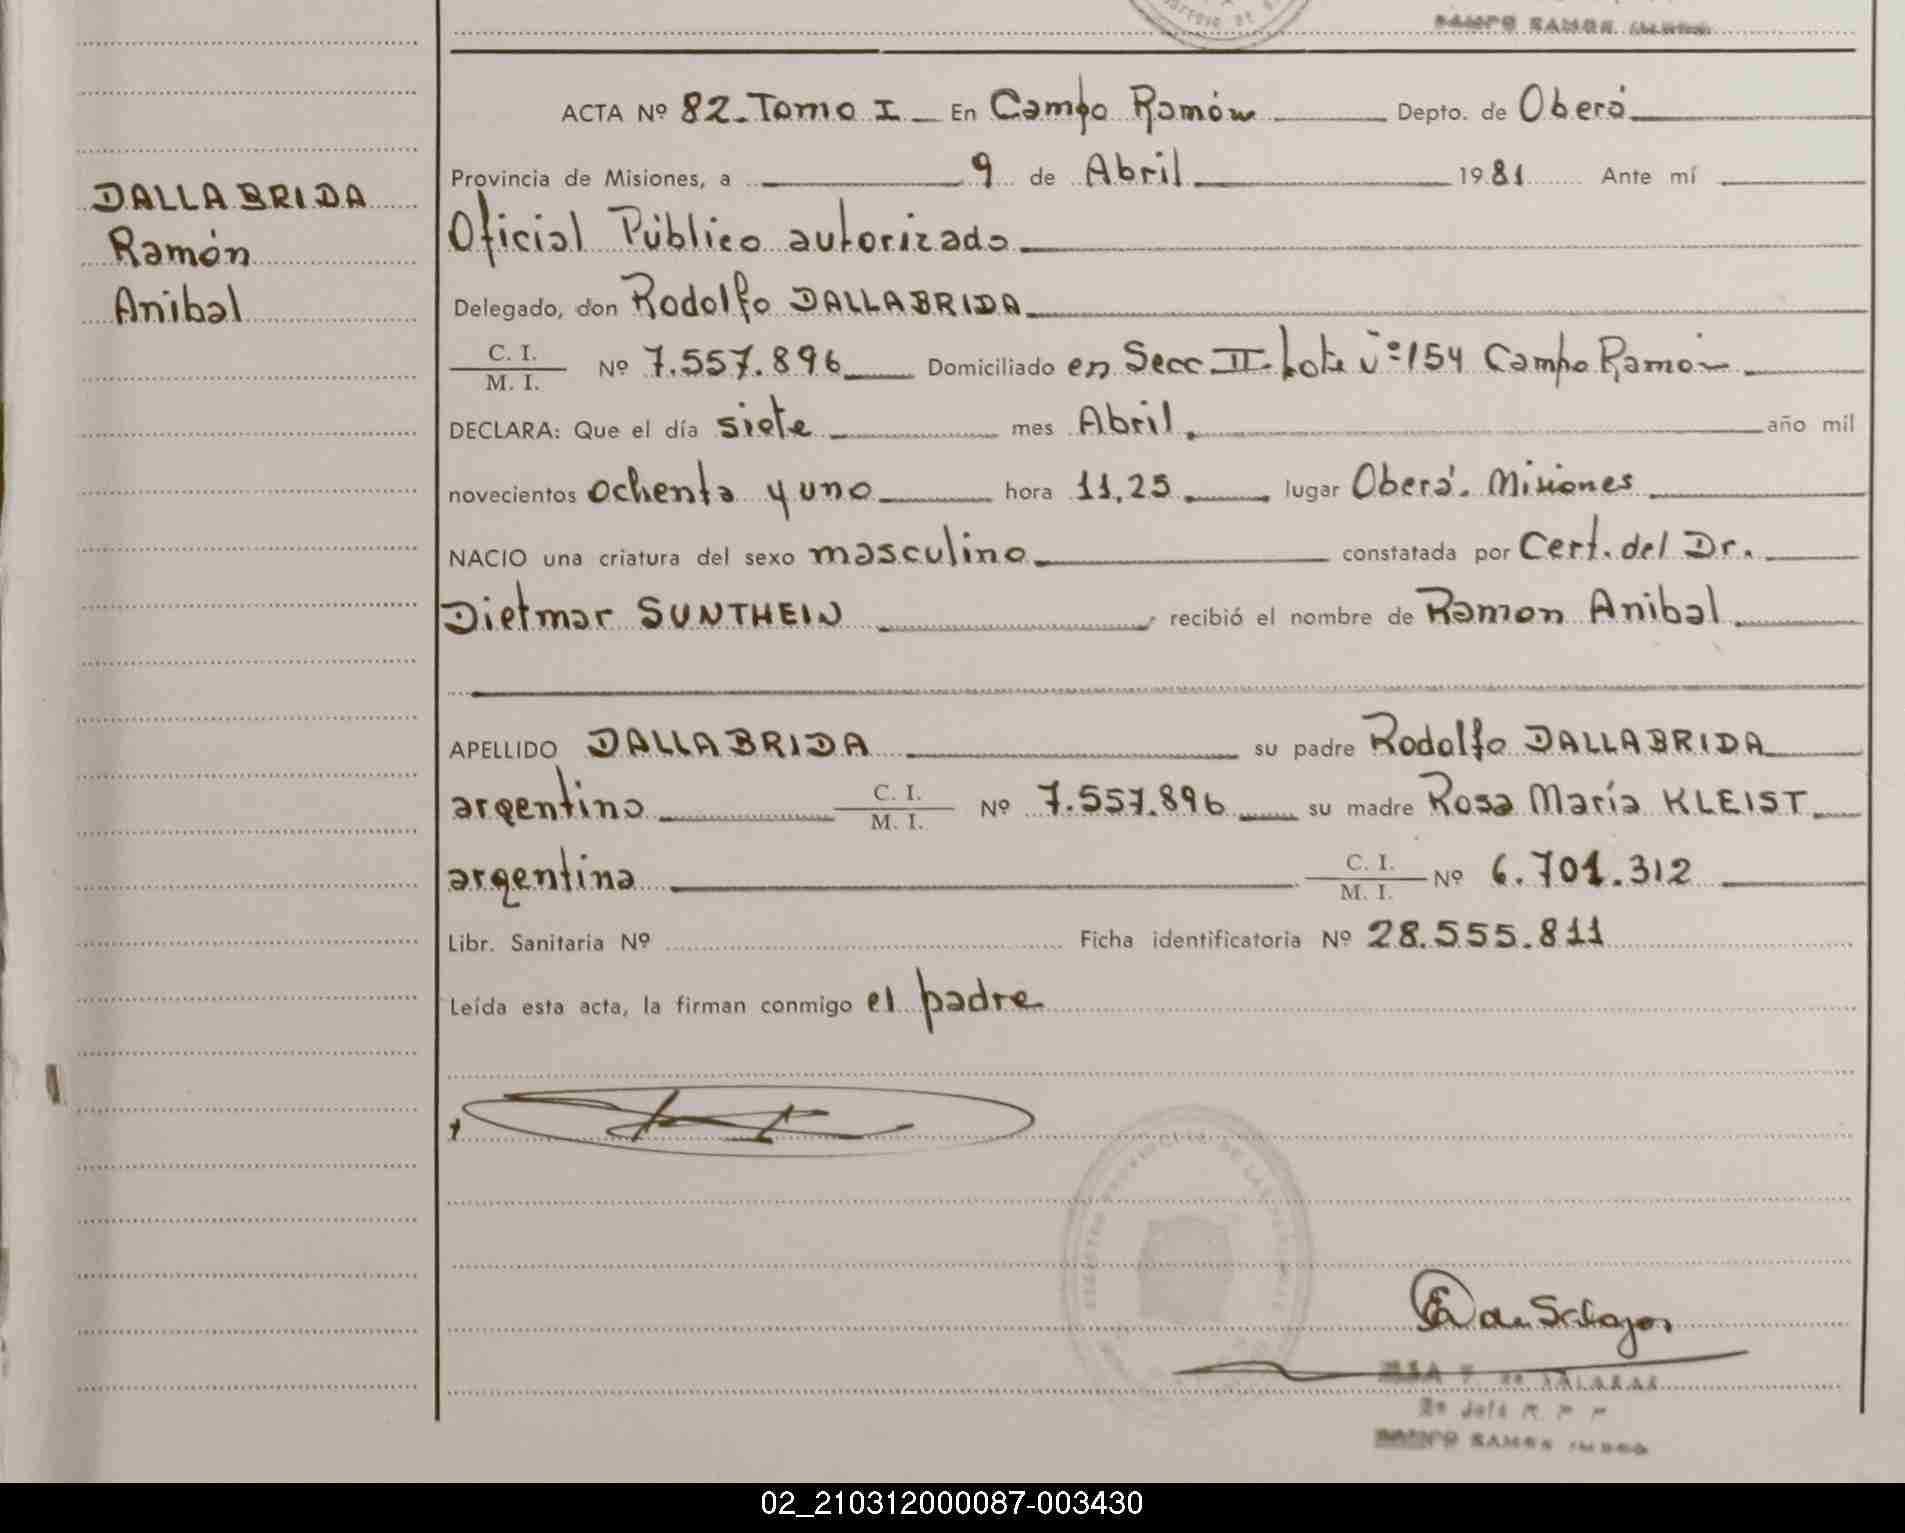 CAMPO RAMON
ACTA Nº 82. Tomo I En Campo Ramón Depto. de Oberá
Provincia de Misiones, a 9 de Abril 1981 Ante mí
Oficial Público autorizado
Delegado, don Rodolfo DALLABRIDA
C. I.
M. I. Nº 7.557.896 Domiciliado en Secc II. Lote nº 154 Campo Ramón
DECLARA: Que el día siete mes Abril. año mil
novecientos ochenta y uno hora 11,25 lugar Oberá. Misiones
NACIO una criatura del sexo masculino constatada por Cert. del Dr.
Dietmar SUNTHEIN recibió el nombre de Ramon Anibal
APELLIDO DALLABRIDA su padre Rodolfo DALLABRIDA
argentino C. I.
M. I. Nº 7.557.896 su madre Rosa María KLEIST
argentina C. I.
M. I. Nº 6.701.312
Libr. Sanitaria Nº Ficha identificatoria Nº 28.555.811
Leída esta acta, la firman conmigo el padre
DALLABRIDA
Ramón
Anibal
de Salazar
de SALAZAR
CAMPO RAMON
02_210312000087-003430